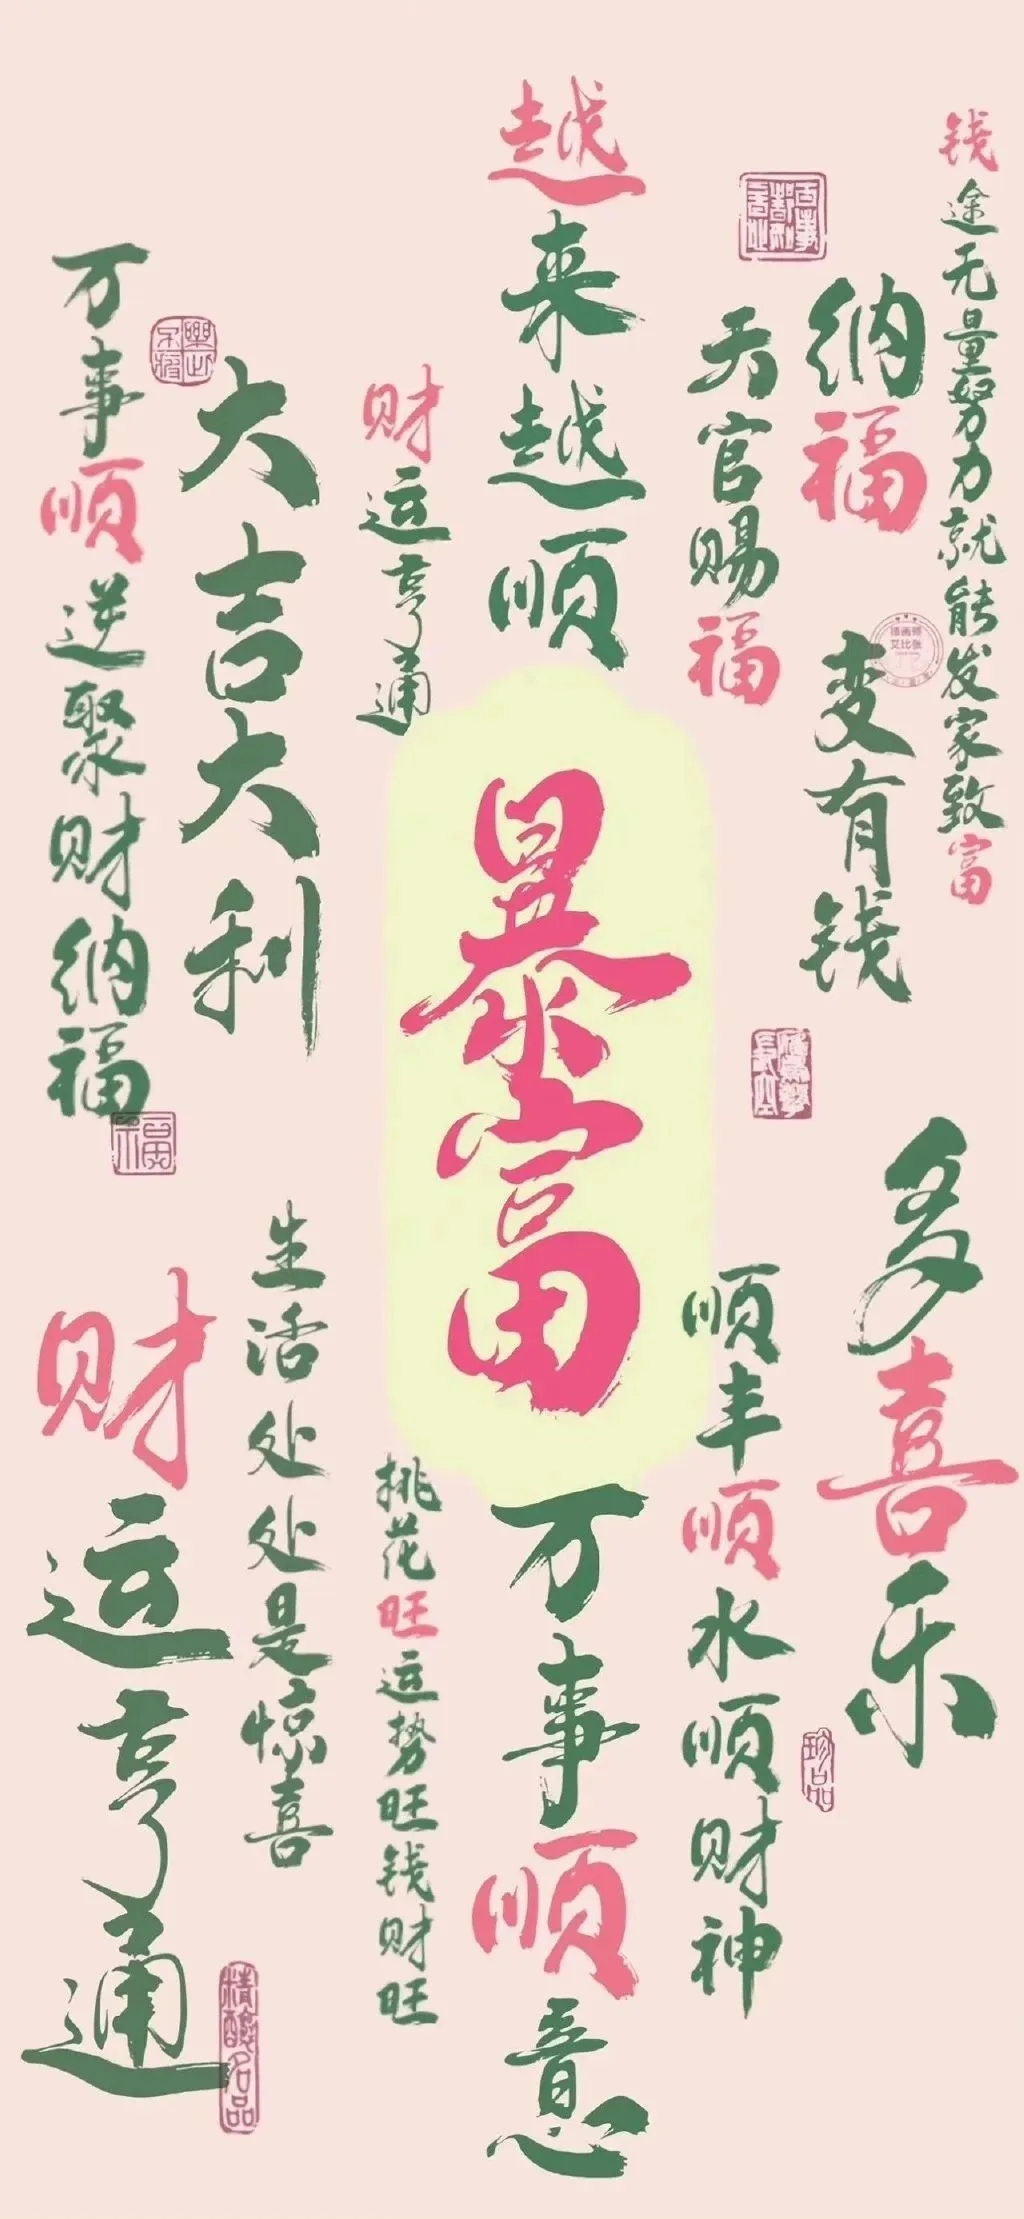 钱途无量努力就能发家致富
纳福
变有钱
多喜乐
天官赐福
顺丰顺水顺财神
越来越顺
暴富
万事顺意
财运亨通
挑花旺运势旺钱财旺
大吉大利
生活处处是惊喜
万事顺逆聚财纳福
财运亨通
福
珍品
精酿名品
插画师
艾比张